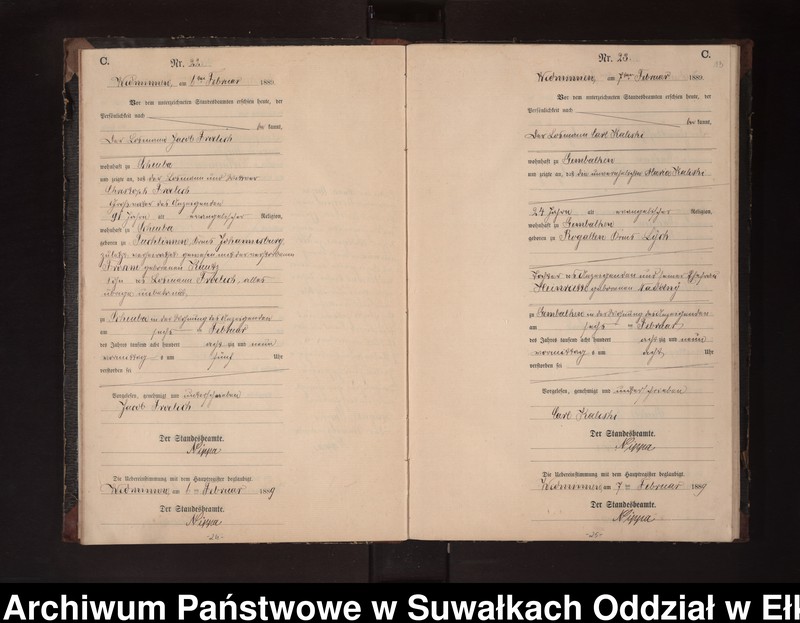 C.
Nr. 22.
Widminnen, am 6ten Februar 1889.
Vor dem unterzeichneten Standesbeamten erschien heute, der
Persönlichkeit nach
be kannt,
Der Losmann Jacob
wohnhaft zu
und zeigte an, daß der Losmann und Wittwer
Christoph
Großvater des Anzeigenden
91 Jahre alt evangelischer Religion,
wohnhaft zu
geboren zu Kreis Johannisburg
zuletzt verheirathet gewesen mit der verstorbenen
geborenen
Sohn des Losmann alles
übrige unbekannt,
zu in der Wohnung des Anzeigenden
am sechs ten Februar
des Jahres tausend acht hundert acht zig und neun
Vormittags um fünf Uhr
verstorben sei
Vorgelesen, genehmigt und unterschrieben
Jacob
Der Standesbeamte.
Nippa
Die Uebereinstimmung mit dem Hauptregister beglaubigt.
Widminnen, am 6ten Februar 1889
Der Standesbeamte.
Nippa
C.
Nr. 23.
Widminnen, am 7ten Februar 1889.
Vor dem unterzeichneten Standesbeamten erschien heute, der
Persönlichkeit nach
be kannt,
Der Losmann Carl Kaleschi
wohnhaft zu Gembalken
und zeigte an, daß die unverehelichte Maria Kaleschi
24 Jahre alt evangelischer Religion,
wohnhaft zu Gembalken
geboren zu Rogallen Kreis Lyck
Tochter des Anzeigenden und seiner Ehefrau
geborenen
zu Gembalken in der Wohnung des Anzeigenden
am sechs ten Februar
des Jahres tausend acht hundert acht zig und neun
Vormittags um acht Uhr
verstorben sei
Vorgelesen, genehmigt und unterschrieben
Carl Kaleschi
Der Standesbeamte.
Nippa
Die Uebereinstimmung mit dem Hauptregister beglaubigt.
Widminnen, am 7ten Februar 1889
Der Standesbeamte.
Nippa
Archiwum Państwowe w Suwałkach Oddział w Ełk